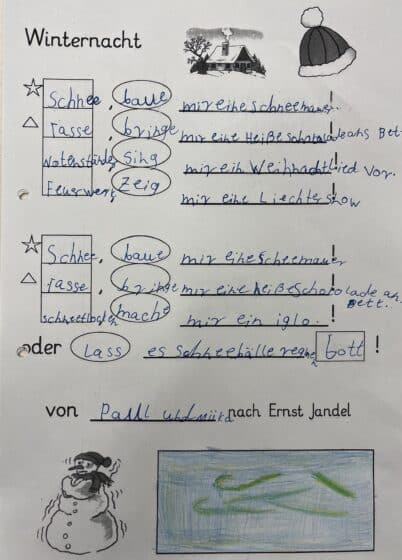 Winternacht
Schnee, baue mir eine schneemauer.!
Tasse, bringe mir eine Heiße schokolade ans Bet!
Notenständer, sing mir ein Weihnachtlied vor.!
Feuerwerk, zeig mir eine Liechtershow!
Schnee, baue mir eine scheemauer!
Tasse, bringe mir eine heiße schokolade an Bett.!
schneeflocken, mache mir ein iglo.!
oder Lass es schneebälle regnen Gott!
von Paul und nach Ernst Jandel